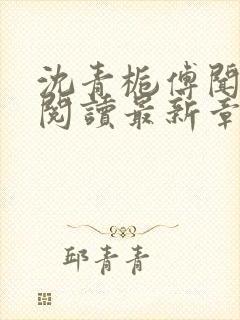 沈青栀傅聞
閱讀最新章
邱青青